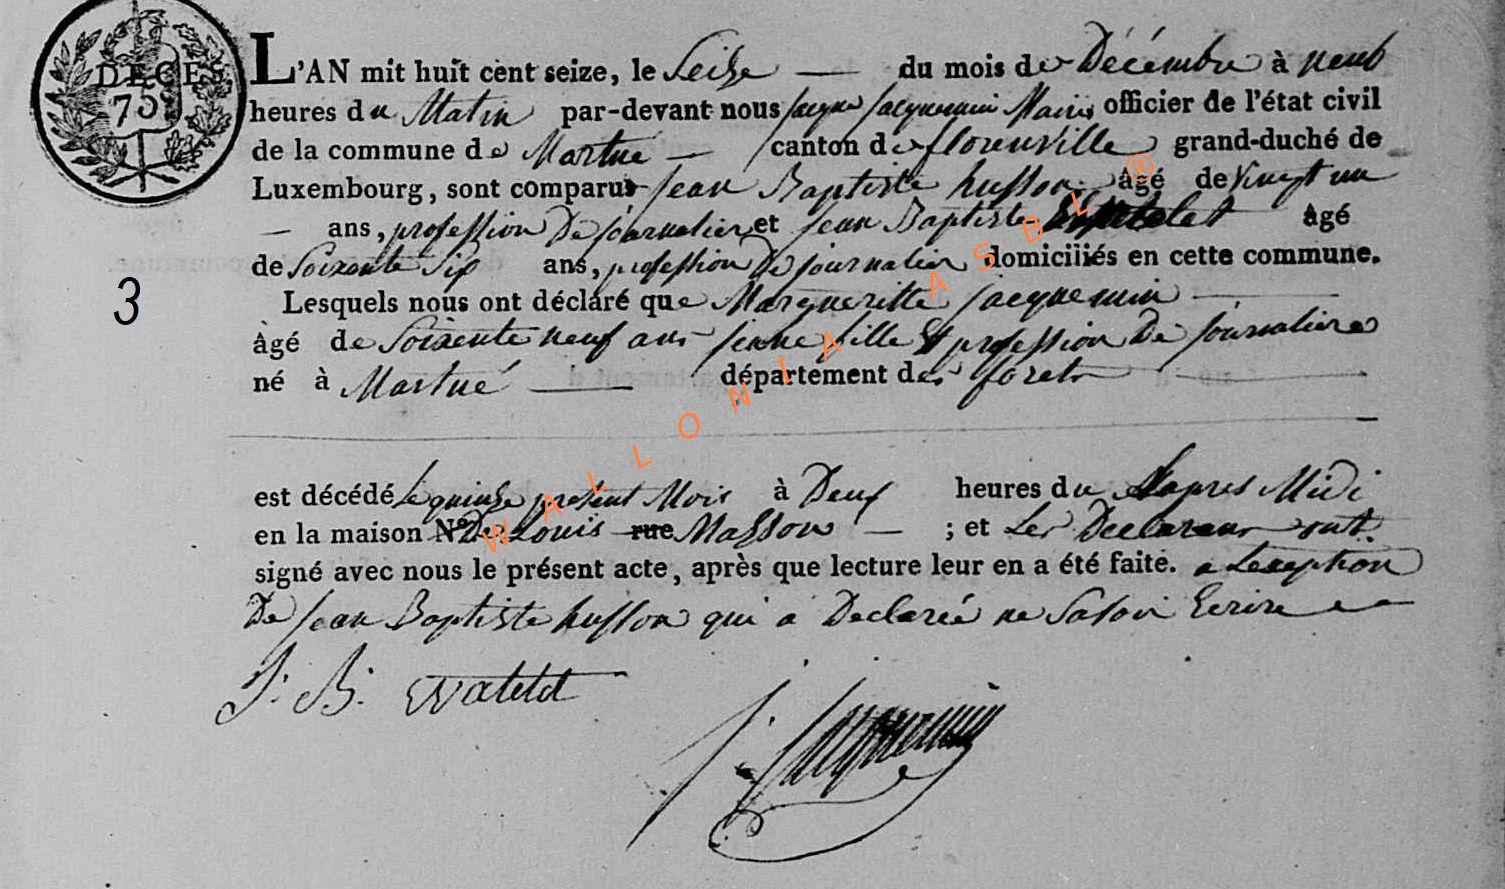 DECES
75
L'AN mit huit cent seize, le Seize du mois de Décembre à neuf
heures du Matin par-devant nous jacque jacquemin Maire officier de l'état civil
de la commune de Martué canton de florenville grand-duché de
Luxembourg, sont comparus jean Baptiste husson âgé de vingt un
ans, profession De journalier et jean Baptiste Watelet âgé
de Soixente Six ans, profession De journalier domiciliés en cette commune.
3
Lesquels nous ont déclaré que Margueritte jacquemin
âgé de Soixente neuf ans jeune fille et profession De journaliere
né à Martué département des foret
est décédé le quinse present Mois à Deux heures du apres Midi
en la maison N° De Louis rue Masson ; et Les Declarans ont
signé avec nous le présent acte, après que lecture leur en a été faite. a Lexeption
De jean Baptiste husson qui a Declareé ne Savoir Ecrire
J. B. Watelet
J. Jacquemin
WALLONIA ASBL ®